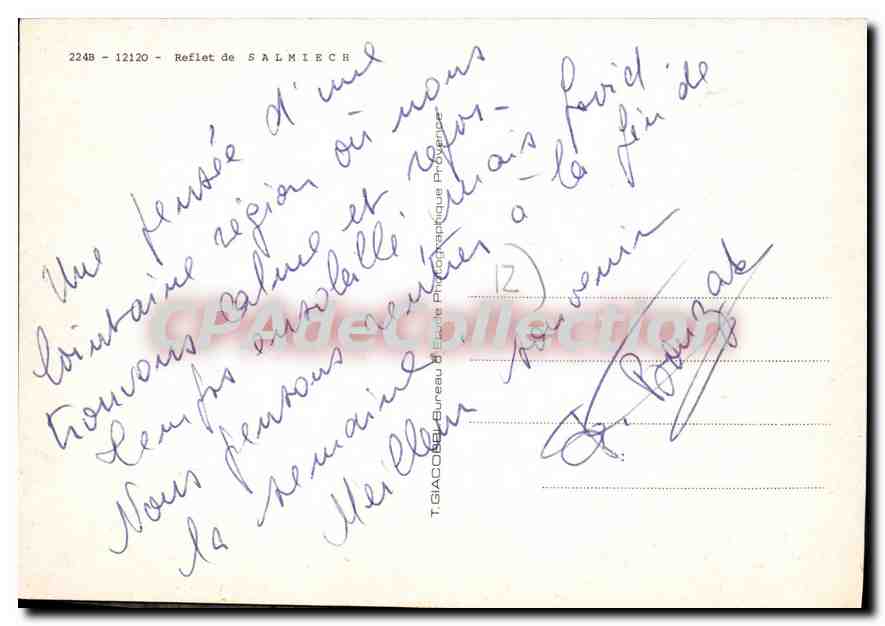 224B - 12120 - Reflet de SALMIECH
Une pensée d'une
lointaine région où nous
trouvons calme et repos -
temps ensoleillé, mais froid.
Nous pensons rentrer à la fin de
la semaine.
Meilleur souvenir
12
T. GIACOBBI Bureau d'Etude Photographique Provence
CPAdeCollection